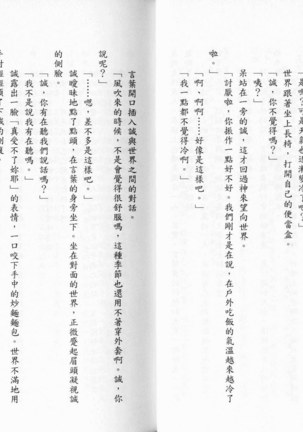 世界跟著坐上長椅，打開自己的便當盒。
「誠，你不覺得嗎？」
「咦？」
呆站在一旁的誠，這才回過神來望向世界。
「討厭啦，你振作一點好不好。我們剛才是在說，在戶外吃飯的氣溫越來越冷了
啦。」
「啊，啊啊……好像是這樣吧。」
「我一點都不覺得冷啊。」
言葉開口插入誠與世界之間的對話。
「風吹來的時候，不是會覺得很舒服嗎，這種季節也還用不著穿外套啊。誠，你
說呢？」
「……嗯，差不多是這樣吧。」
誠曖昧地點了點頭，在言葉的身旁坐下。坐在對面的世界，正微蹙起眉頭凝視誠
的側臉。
「誠，你有在聽我們說話嗎？」
「我不是說我有在聽嗎。」
誠露出一臉「真受不了妳耶」的表情，一口咬下手中的炒麵麵包。世界不滿地用